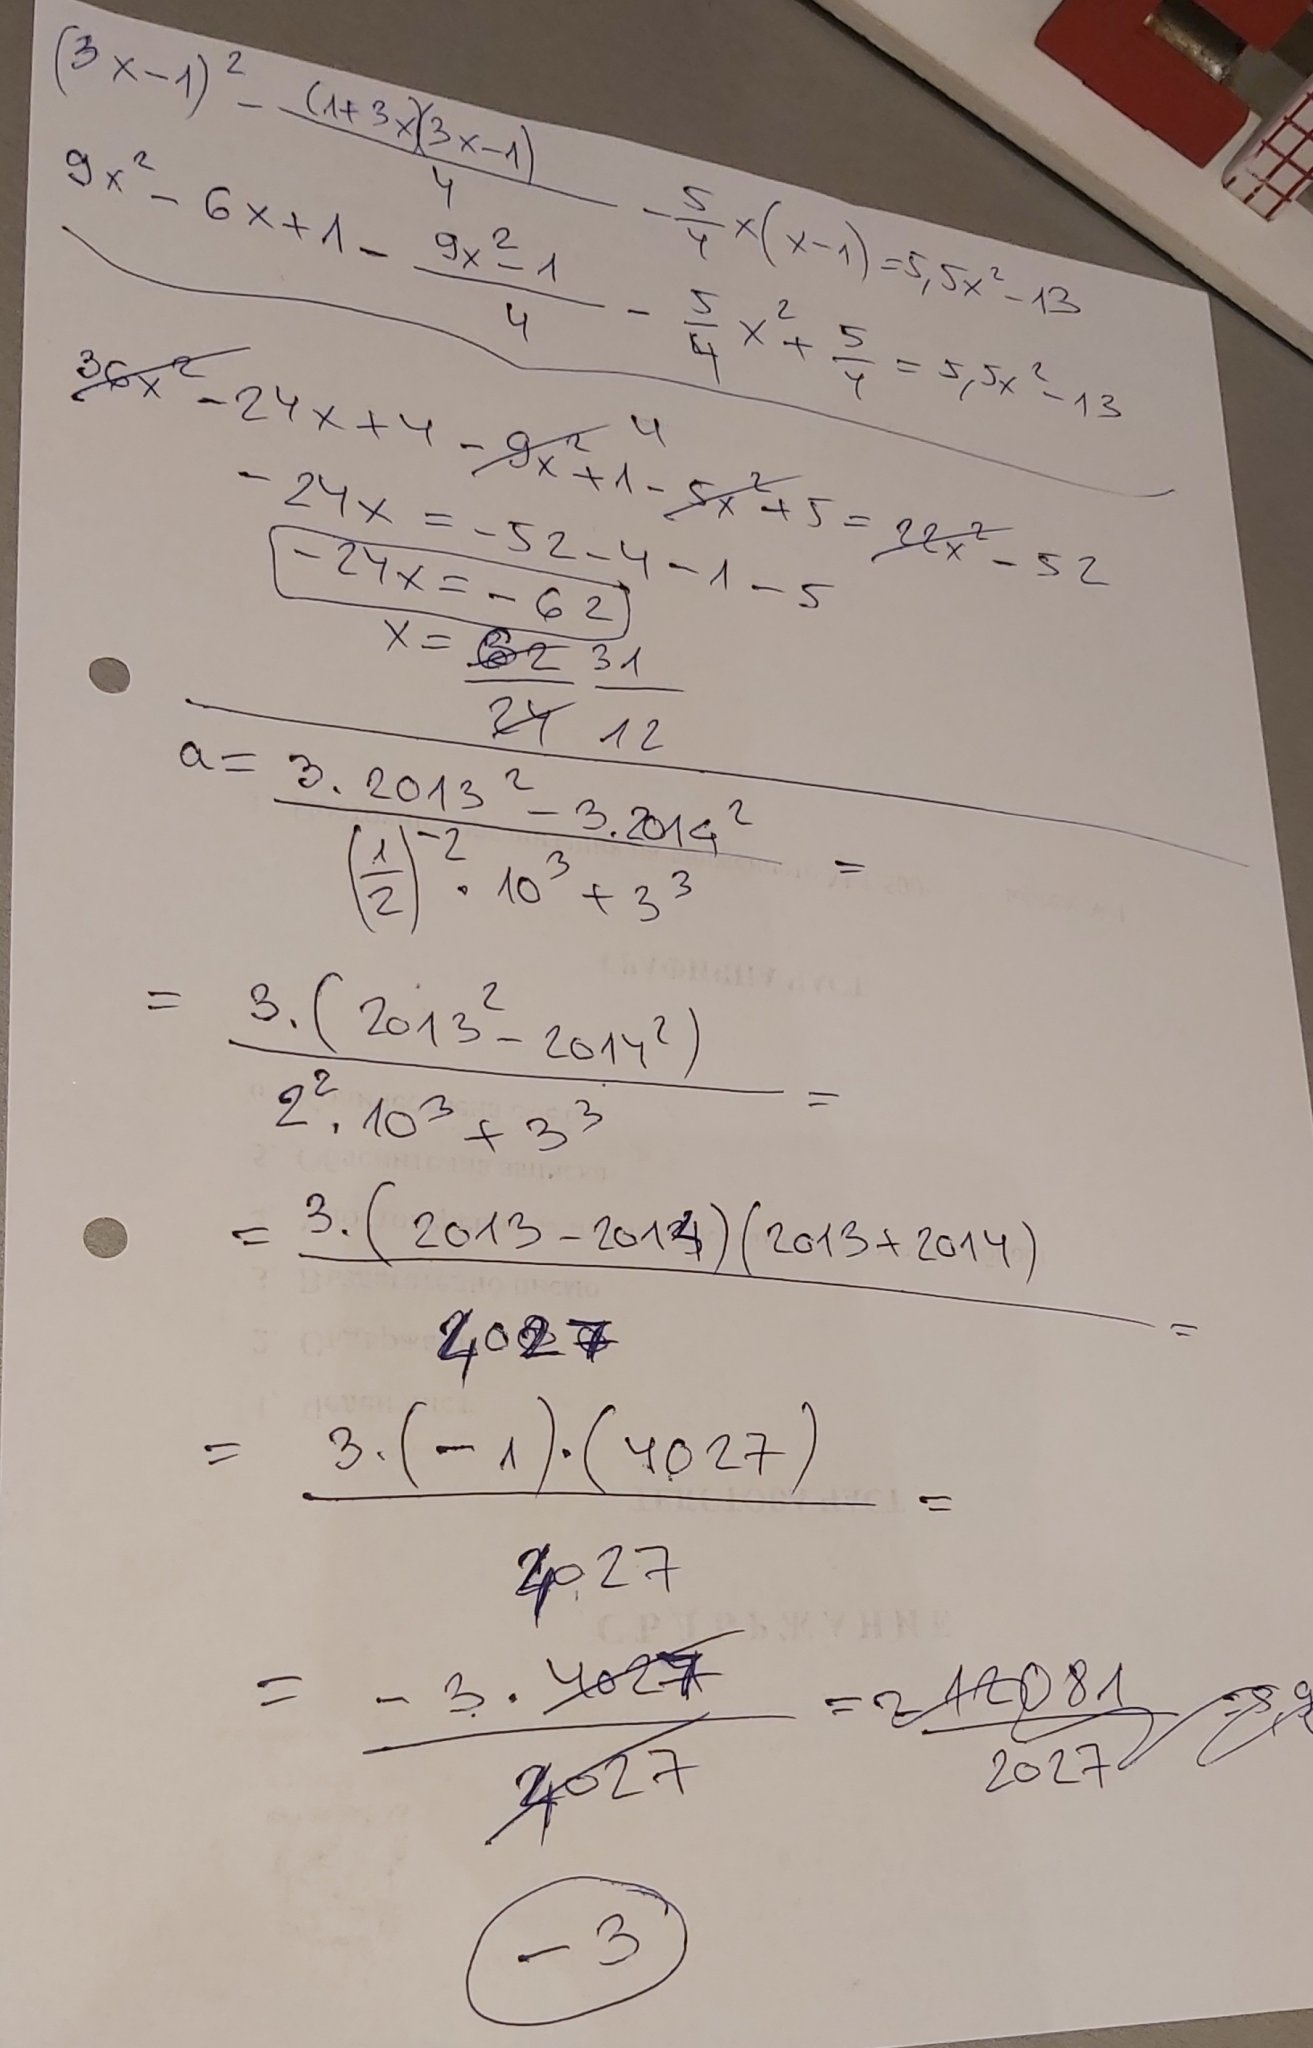 (3x-1)² - (1+3x)(3x-1)/4 - 5/4 x(x-1) = 5,5x²-13
9x² - 6x+1 - 9x²-1/4 - 5/4 x² + 5/4 = 5,5x²-13
4
36x² - 24x+4 - 9x²+1 - 5x²+5 = 22x² - 52
-24x = -52-4-1-5
-24x = -62
x = 62/24 31/12
a = 3.2013² - 3.2014² / (1/2)⁻² . 10³ + 3³ =
= 3.(2013² - 2014²) / 2² . 10³ + 3³ =
= 3.(2013-2014)(2013+2014) / 4027 =
= 3.(-1).(4027) / 4027 =
= -3.4027 / 4027 = 12081 / 2027
-3
СЪДЪРЖАНИЕ